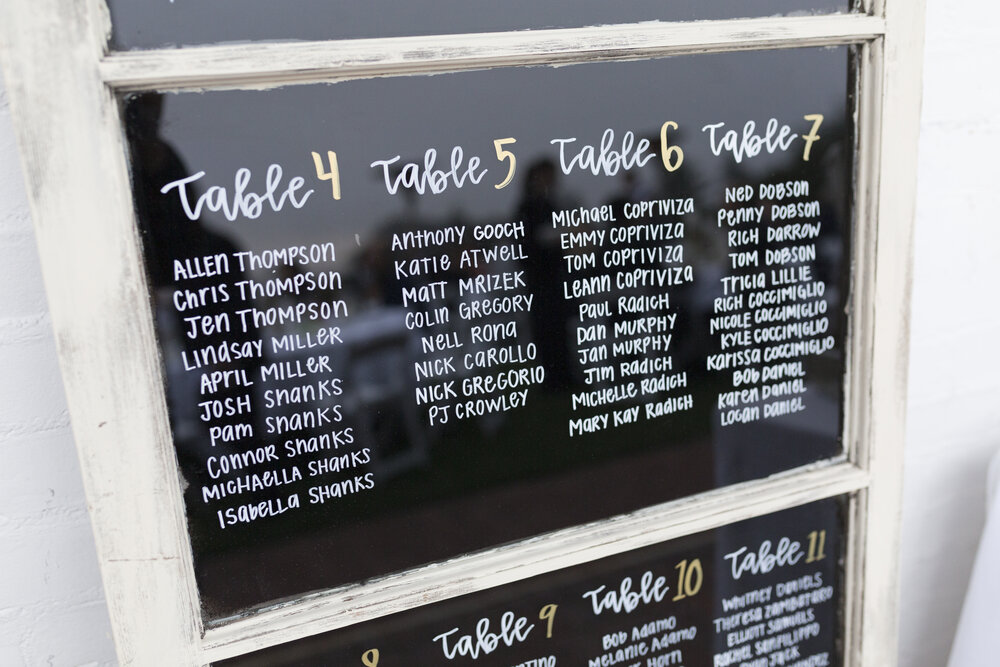 Table 4
ALLEN THOMPSON
CHRIS THOMPSON
JEN THOMPSON
LINDSAY MILLER
APRIL MILLER
JOSH SHANKS
PAM SHANKS
CONNOR SHANKS
MICHAELLA SHANKS
ISABELLA SHANKS
Table 5
ANTHONY GOOCH
KATIE ATWELL
MATT MRIZEK
COLIN GREGORY
NELL RONA
NICK CAROLLO
NICK GREGORIO
PJ CROWLEY
Table 6
MICHAEL COPRIVIZA
EMMY COPRIVIZA
TOM COPRIVIZA
LEANN COPRIVIZA
PAUL RADICH
DAN MURPHY
JAN MURPHY
JIM RADICH
MICHELLE RADICH
MARY KAY RADICH
Table 7
NED DOBSON
PENNY DOBSON
RICH DARROW
TOM DOBSON
TRICIA LILLIE
RICH COCCIMIGLIO
NICOLE COCCIMIGLIO
KYLE COCCIMIGLIO
KARISSA COCCIMIGLIO
BOB DANIEL
KAREN DANIEL
LOGAN DANIEL
8
Table 9
Table 10
BOB ADAMO
MELANIE ADAMO
HORN
Table 11
WHITNEY DANIELS
THERESA ZAMBATARO
ELLIOTT SAMUELS
RACHEL SANFILIPPO
JACK